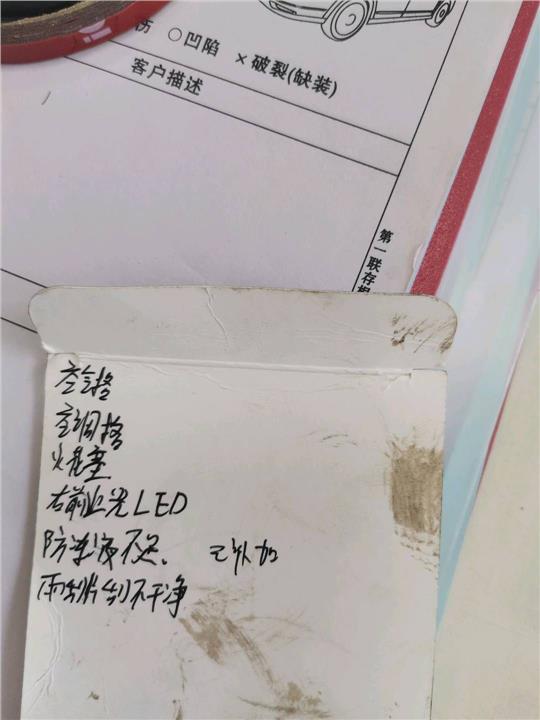 伤 ○凹陷 ×破裂(缺装)
客户描述
第一联存根
空气格
空调格
火花塞
右前近光LED
防冻液不足、 已补加
雨刮片刮不干净